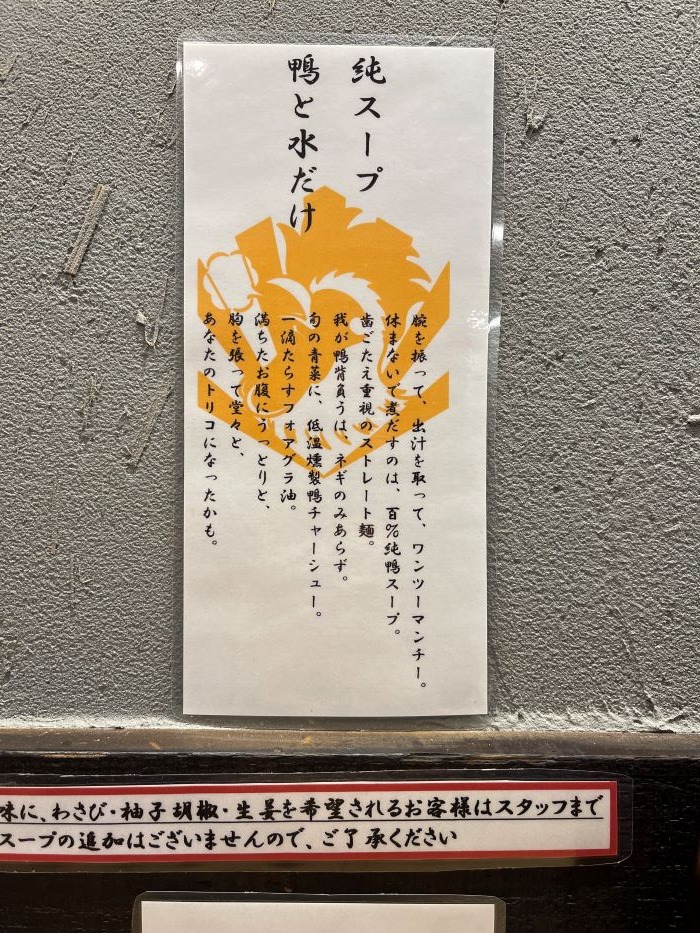 純スープ
鴨と水だけ
腕を振って、出汁を取って、ワンツーマンチー。
休まないで煮だすのは、百%純鴨スープ。
歯ごたえ重視のストレート麺。
我が鴨背負うは、ネギのみあらず。
旬の青菜に、低温燻製鴨チャーシュー。
一滴たらすフォアグラ油。
満ちたお腹にうっとりと、
胸を張って堂々と、
あなたのトリコになったかも。
味に、わさび・柚子胡椒・生姜を希望されるお客様はスタッフまで
スープの追加はございませんので、ご了承ください